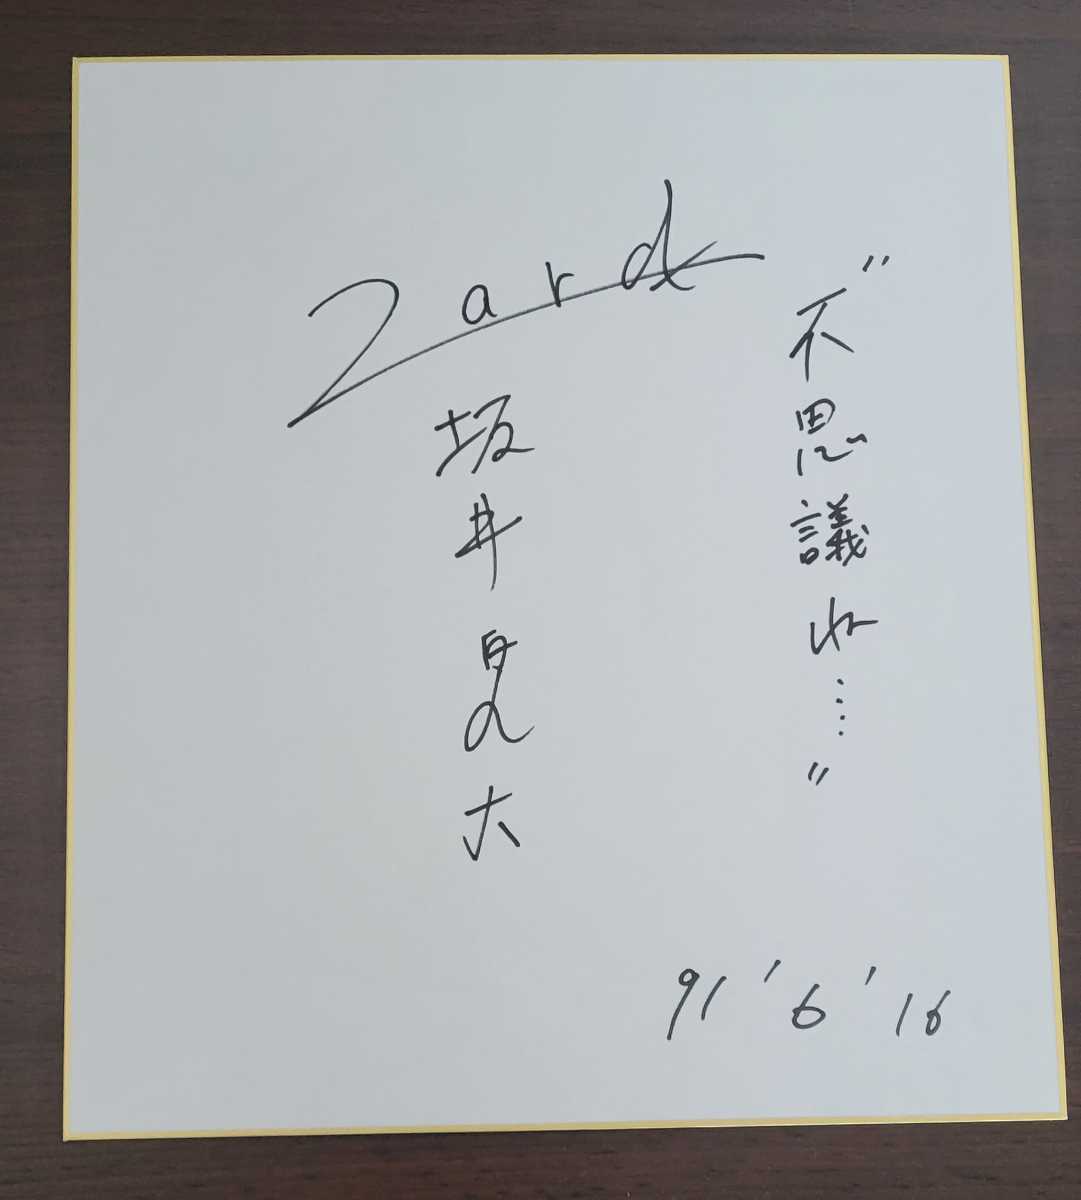 Zard
"不思議ね……"
坂井泉水
91'6'16